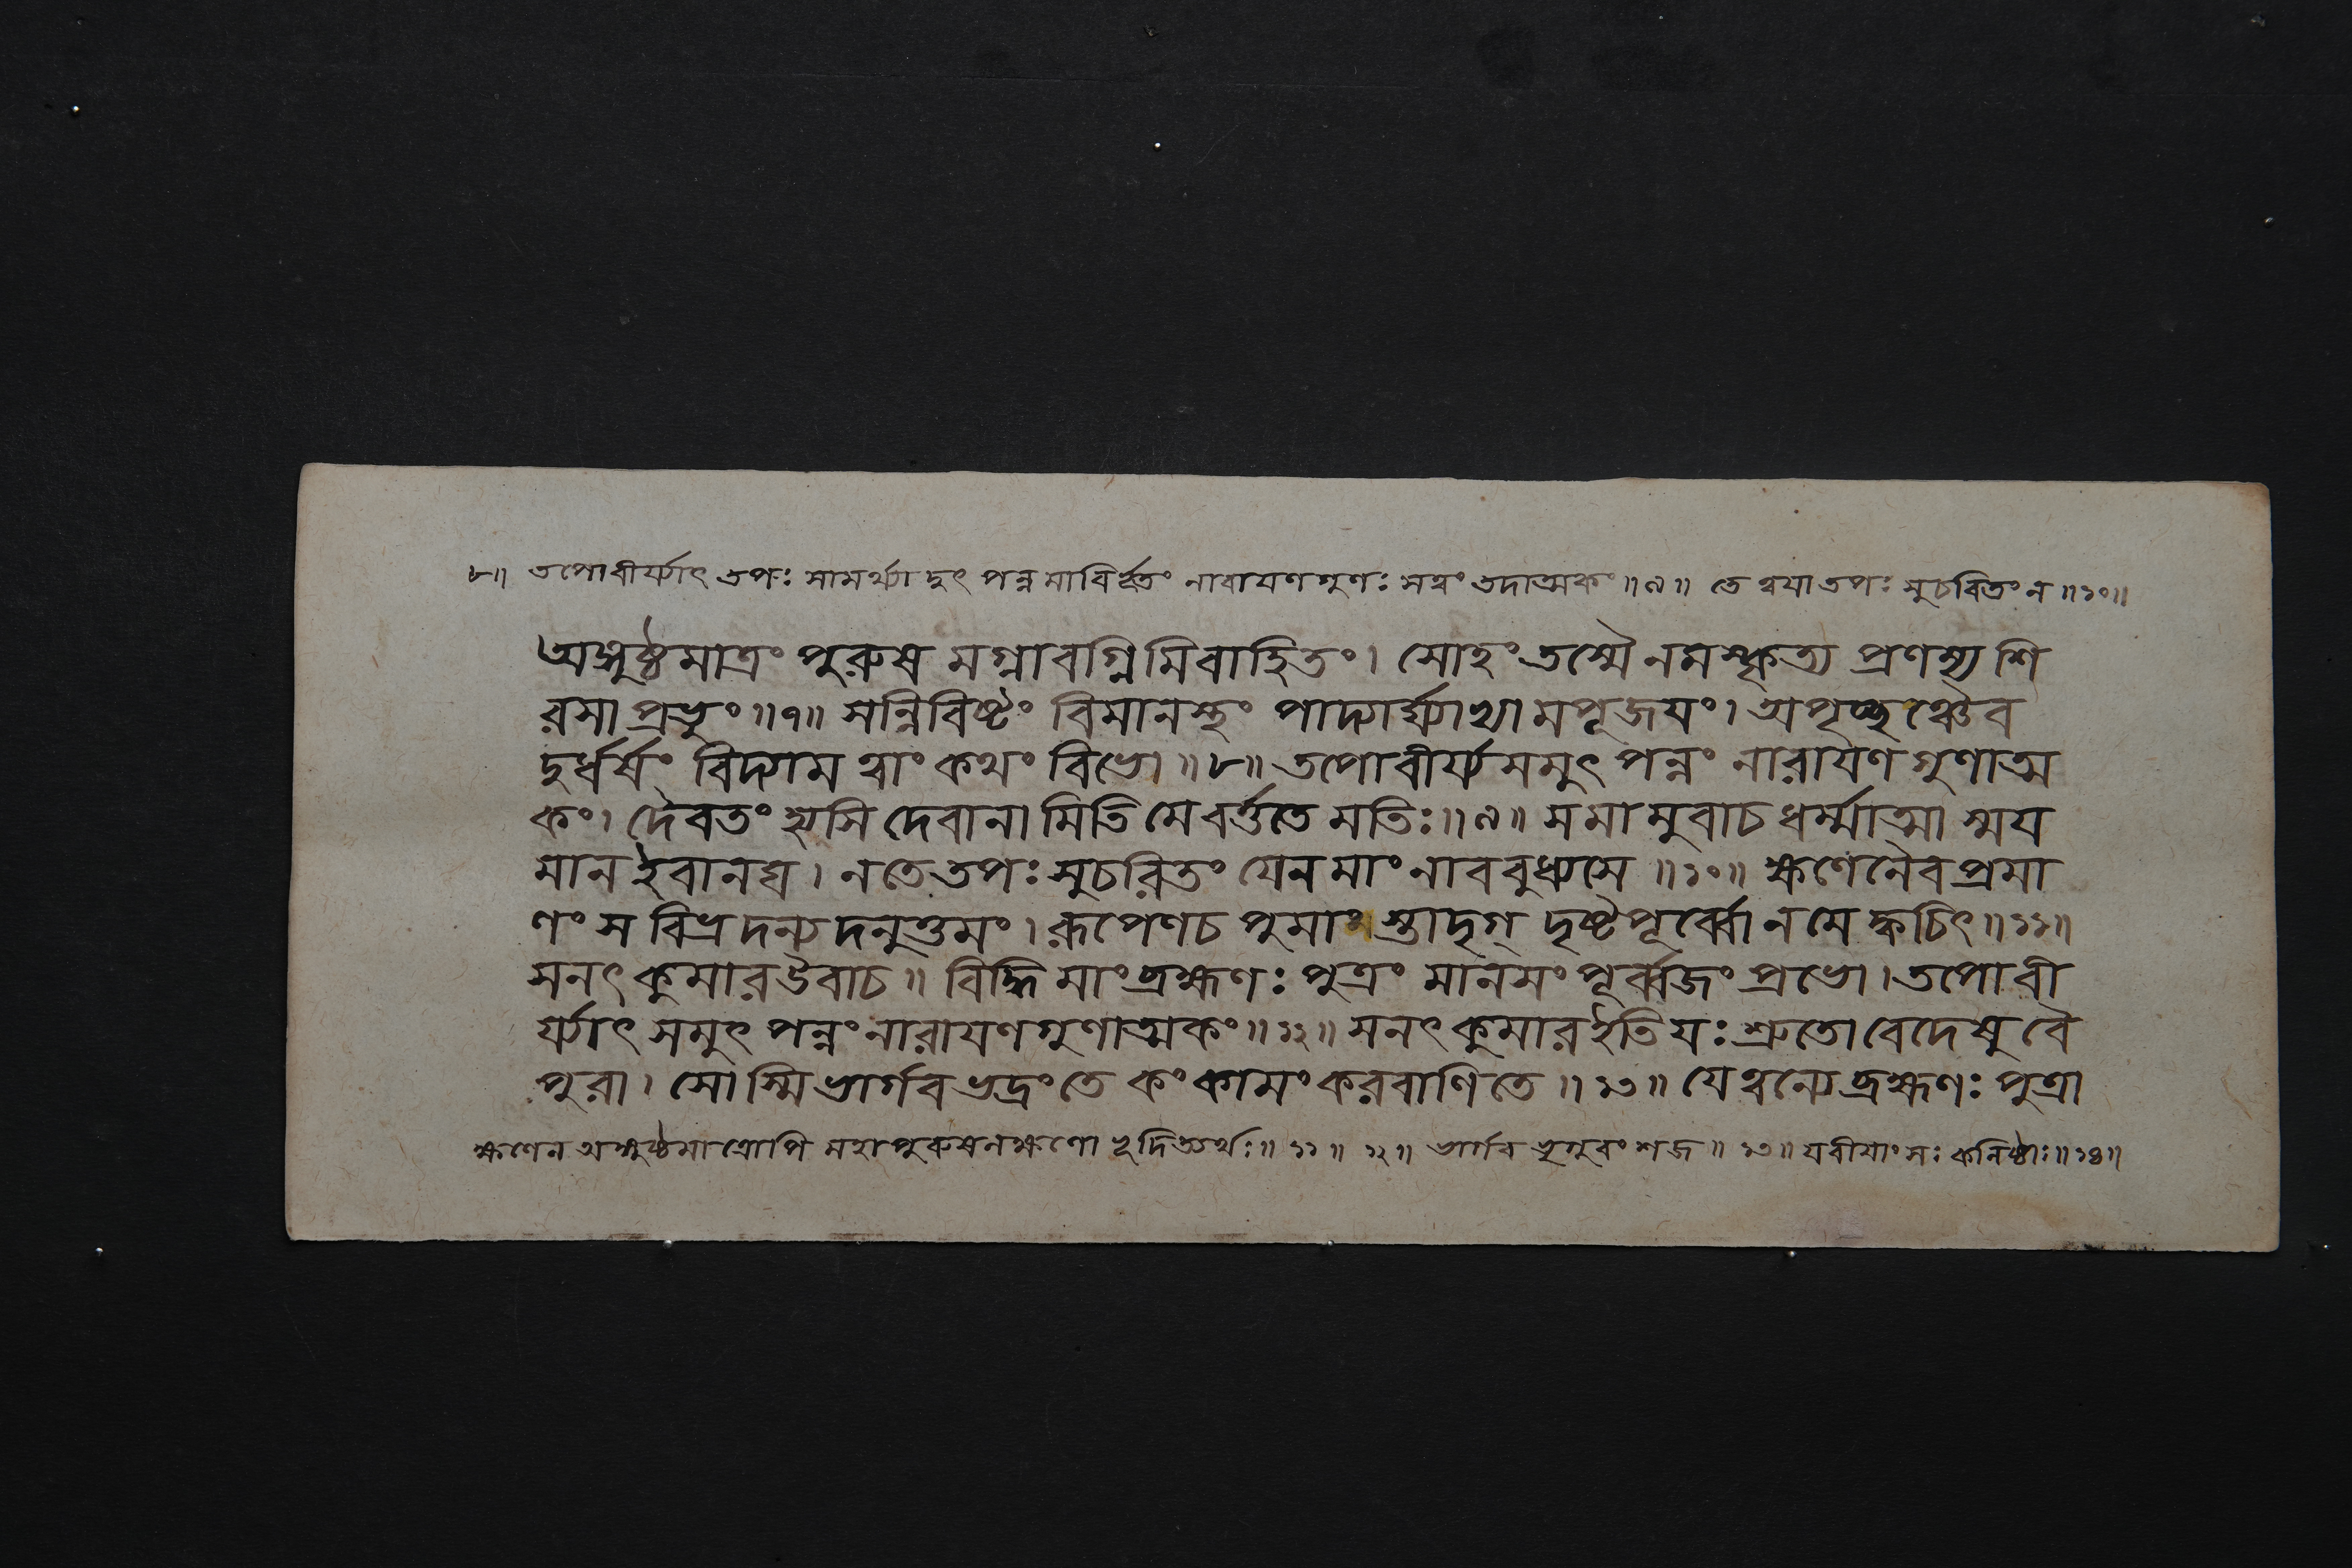 ৮॥ তপোবীর্য্যাৎ তপঃ সামর্থ্যাদুৎ পন্নমাবির্ভূতং নারায়ণগুণঃ সত্ত্বং তদাত্মকং ॥৯॥ তে ত্বয়া তপঃ সুচরিতং ন ॥১০॥
অঙ্গুষ্ঠমাত্রং পুরুষ মগ্নাবগ্নিমিবাহিতং। সোহং তস্মৈ নমস্কৃত্য প্রণম্য শি
রসা প্রভুং ॥৭॥ সন্নিবিষ্টং বিমানস্থং পাদ্যার্ঘ্যাভ্যামপূজয়ং। অপৃচ্ছঞ্চৈব
দুর্ধর্ষং বিদ্যাম ত্বাং কথং বিভো ॥৮॥ তপোবীর্য্যসমুৎ পন্নং নারায়ণ গুণাত্ম
কং। দৈবতং হ্যসি দেবানামিতি মে বর্ত্ততে মতিঃ॥৯॥ স মামুবাচ ধর্ম্মাত্মা স্ময়
মান ইবানঘ। ন তে তপঃ সুচরিতং যেন মাং নাববুধ্যসে ॥১০॥ ক্ষণেনৈব প্রমা
ণং স বিভ্রদন্যদনুত্তমং। রূপেণ চ পুমাংস্তাদৃগ্ দৃষ্টপূর্ব্বো ন মে ক্বচিৎ॥১১॥
সনৎ কুমার উবাচ॥ বিদ্ধি মাং ব্রহ্মণঃ পুত্রং মানসং পূর্ব্বজং প্রভো। তপোবী
র্য্যাৎ সমুৎ পন্নং নারায়ণগুণাত্মকং॥১২॥ সনৎ কুমার ইতি যঃ শ্রুতো বেদেষু বৈ
পুরা। সোস্মি ভার্গব ভদ্রং তে কং কামং করবাণি তে ॥১৩॥ যে ত্বন্যে ব্রহ্মণঃ পুত্রা
ক্ষণেন অঙ্গুষ্ঠমাত্রোপি মহাপুরুষলক্ষণো ভূদিত্যর্থঃ॥ ১১ ॥ ১২॥ ভার্গব ভৃগুবংশজ ॥ ১৩॥ যবীয়াংসঃ কনিষ্ঠাঃ॥১৪॥